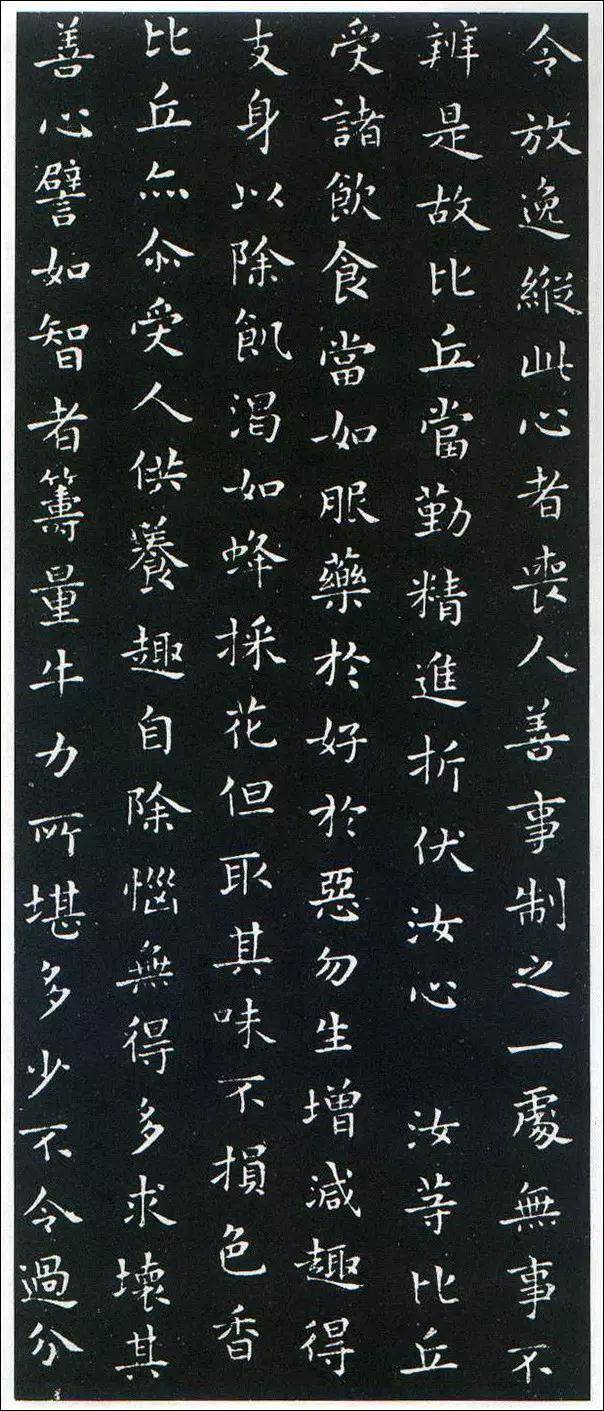 令放逸縱此心者喪人善事制之一處無事不
辨是故比丘當勤精進折伏汝心 汝等比丘
受諸飲食當如服藥於好於惡勿生增減趣得
支身以除飢渴如蜂採花但取其味不損色香
比丘亦尒受人供養趣自除惱無得多求壞其
善心譬如智者籌量牛力所堪多少不令過分